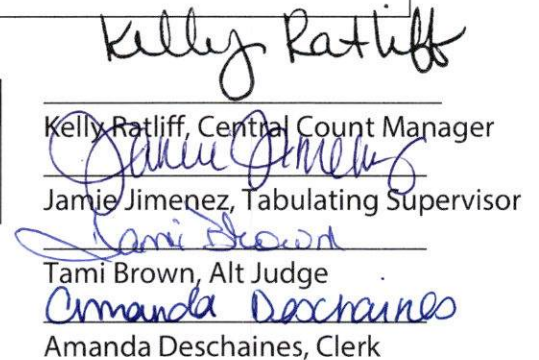 Kelly Ratliff
Kelly Ratliff, Central Count Manager
Jamie Jimenez
Jamie Jimenez, Tabulating Supervisor
Tami Brown
Tami Brown, Alt Judge
Amanda Deschaines
Amanda Deschaines, Clerk